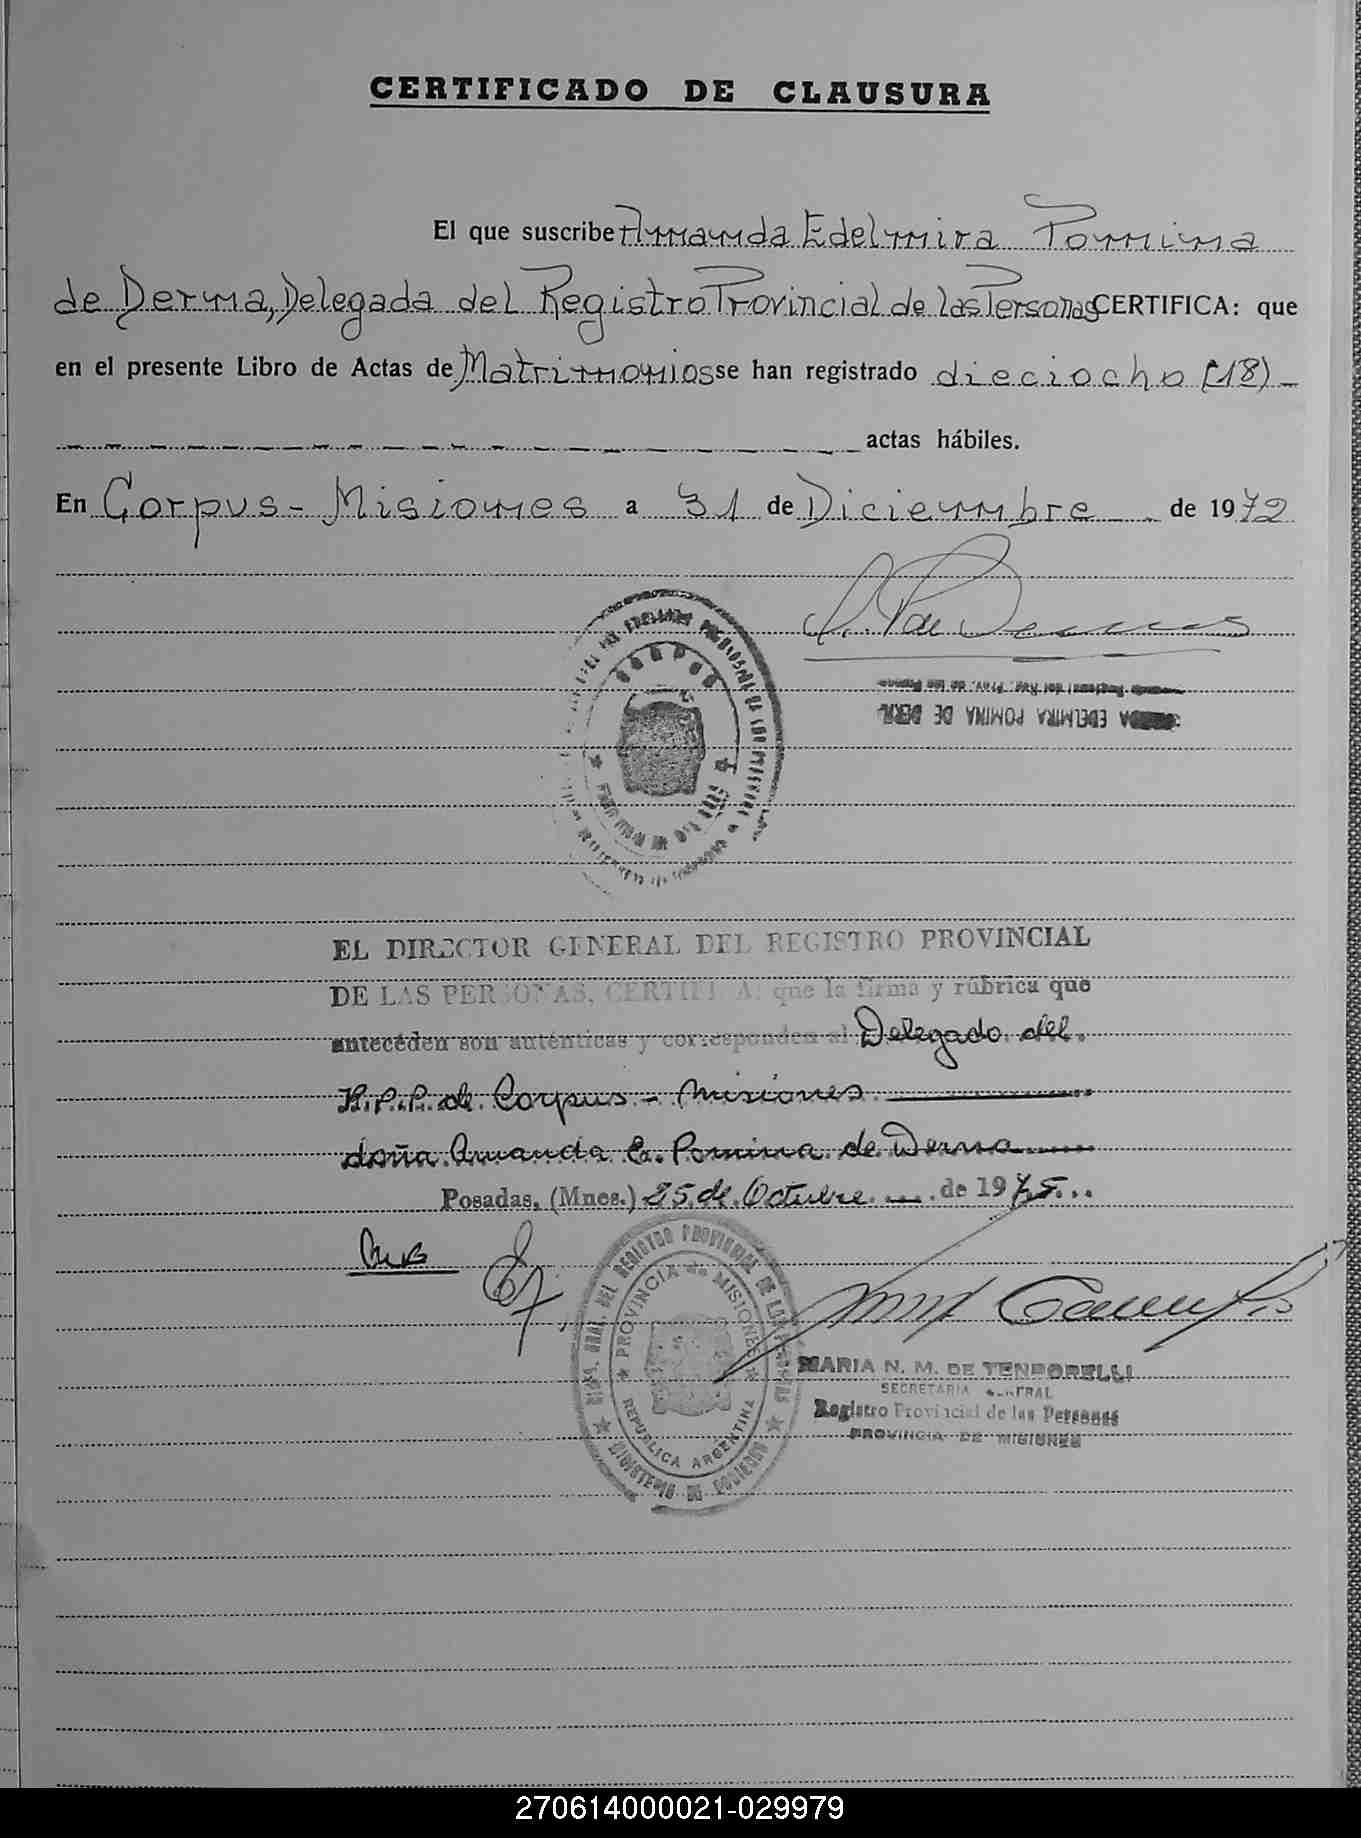 CERTIFICADO DE CLAUSURA
El que suscribe Amanda Edelmira Pomina
de Derna, Delegada del Registro Provincial de las Personas CERTIFICA: que
en el presente Libro de Actas de Matrimonios se han registrado dieciocho (18)
actas hábiles.
En Corpus - Misiones a 31 de Diciembre de 1972
CORPUS
EDELMIRA POMINA DE
EL DIRECTOR GENERAL DEL REGISTRO PROVINCIAL
DE LAS PERSONAS, CERTIFICA: que la firma y rúbrica que
anteceden son auténticas y corresponden al Delegado del
R.P.P. de Corpus - Misiones
doña Amanda E. Pomina de Derna
Posadas, (Mnes.) 25 de Octubre de 1975
GRAL. DEL REGISTRO PROVINCIAL DE LAS PERSONAS
PROVINCIA de MISIONES
REPUBLICA ARGENTINA
MINISTERIO DE GOBIERNO
MARIA N. M. DE TENPORELLI
SECRETARIA GENTRAL
Registro Provincial de las Personas
PROVINCIA DE MISIONES
270614000021-029979